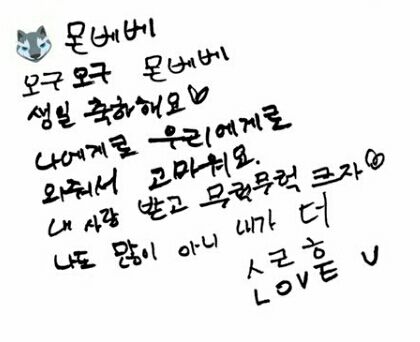 몬베베
오구오구 몬베베
생일 축하해요♡
나에게로 우리에게로
와줘서 고마워요.
내 사랑 받고 무럭무럭 크자♡
나도 많이 아니 내가 더
LOVE U